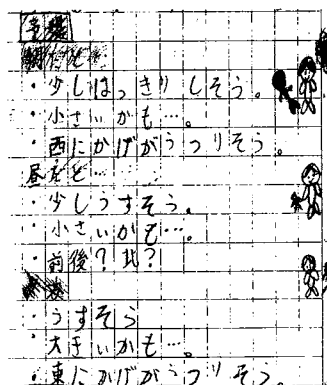 予想
朝だと…
・少しはっきりしそう。
・小さいかも…。
・西にかげがうつりそう。
昼だと…
・少しうすそう。
・小さいかも…。
・前後?北?
・うすそう
・大きいかも…。
・東にかげがうつりそう。